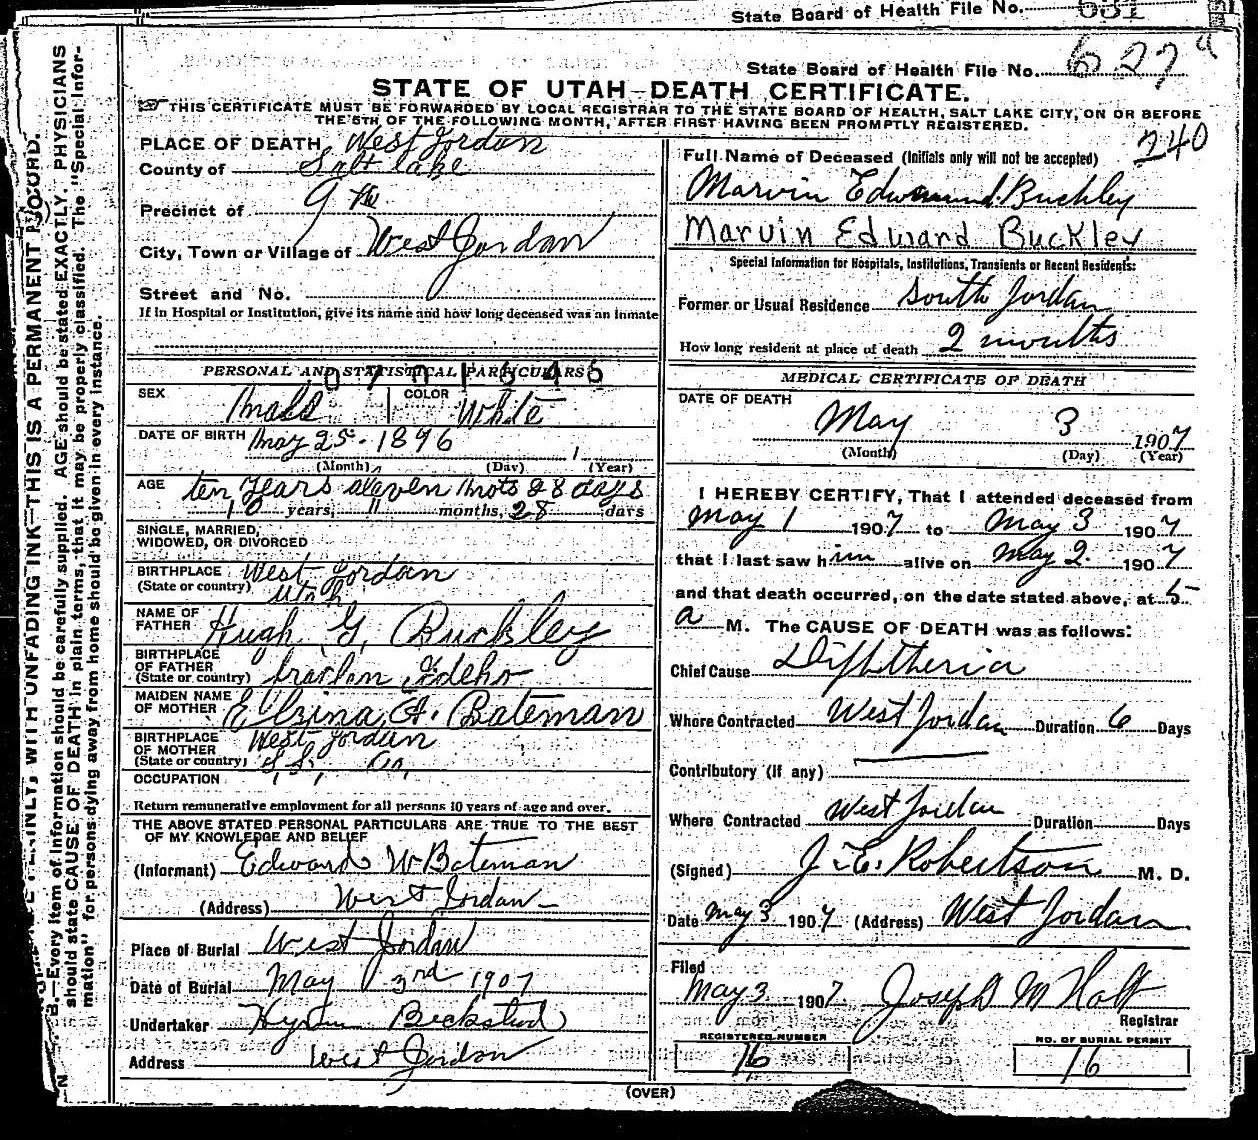 State Board of Health File No. 631
State Board of Health File No. 627 a
STATE OF UTAH—DEATH CERTIFICATE.
THIS CERTIFICATE MUST BE FORWARDED BY LOCAL REGISTRAR TO THE STATE BOARD OF HEALTH, SALT LAKE CITY, ON OR BEFORE
THE 5TH OF THE FOLLOWING MONTH, AFTER FIRST HAVING BEEN PROMPTLY REGISTERED.
240
PLACE OF DEATH West Jordan
County of Salt Lake
Precinct of 9th
City, Town or Village of West Jordan
Street and No.
If in Hospital or Institution, give its name and how long deceased was an inmate
PERSONAL AND STATISTICAL PARTICULARS
SEX Male COLOR White
DATE OF BIRTH May 25 - 1896
(Month) (Day) (Year)
AGE ten Years aleven Mots 28 days
10 years, 11 months, 28 days
SINGLE, MARRIED,
WIDOWED, OR DIVORCED
BIRTHPLACE West Jordan
(State or country) Utah
NAME OF
FATHER Hugh G. Buckley
BIRTHPLACE
OF FATHER
(State or country) Ideho
MAIDEN NAME
OF MOTHER Elzina A. Bateman
BIRTHPLACE
OF MOTHER West Jordan
(State or country) S. L. Co.
OCCUPATION
Return remunerative employment for all persons 10 years of age and over.
THE ABOVE STATED PERSONAL PARTICULARS ARE TRUE TO THE BEST
OF MY KNOWLEDGE AND BELIEF
(Informant) Edward W Bateman
(Address) West Jordan
Place of Burial West Jordan
Date of Burial May 3rd 1907
Undertaker Hyrum Beckstead
Address West Jordan
Full Name of Deceased (Initials only will not be accepted)
Marvin Edwmund Buckley
Marvin Edward Buckley
Special Information for Hospitals, Institutions, Transients or Recent Residents:
Former or Usual Residence South Jordan
How long resident at place of death 2 months
MEDICAL CERTIFICATE OF DEATH
DATE OF DEATH
May 3 1907
(Month) (Day) (Year)
I HEREBY CERTIFY, That I attended deceased from
May 1 1907 to May 3 1907
that I last saw him alive on May 2 1907
and that death occurred, on the date stated above, at 5
a M. The CAUSE OF DEATH was as follows:
Chief Cause Diphtheria
Where Contracted West Jordan Duration 6 Days
Contributory (if any)
Where Contracted West Jordan Duration Days
(Signed) J. E. Robertson M. D.
Date May 3 1907 (Address) West Jordan
Filed
May 3 1907 Joseph M Holt
Registrar
REGISTERED NUMBER
16
NO. OF BURIAL PERMIT
16
(OVER)
PLAINLY, WITH UNFADING INK—THIS IS A PERMANENT RECORD.
B.—Every item of information should be carefully supplied. AGE should be stated EXACTLY. PHYSICIANS
should state CAUSE OF DEATH in plain terms, that it may be properly classified. The "Special Infor-
mation" for persons dying away from home should be given in every instance.